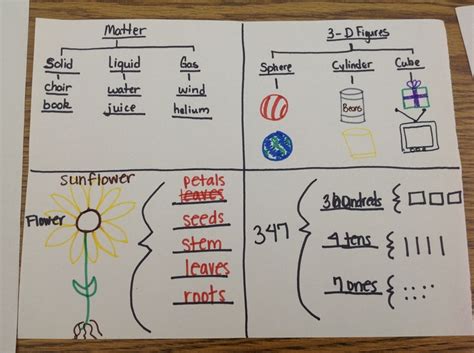 Matter
Solid Liquid Gas
chair water wind
book juice helium
3-D Figures
Sphere Cylinder Cube
Beans
Sunflower
Flower
petals
leaves
seeds
stem
leaves
roots
347
3 hundreds
4 tens
7 ones